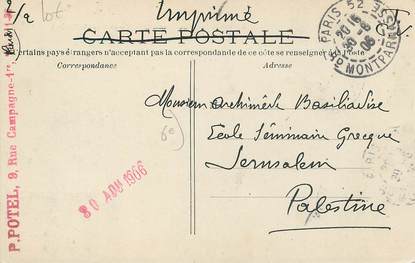 Imprimé
CARTE POSTALE
Certains pays étrangers n'acceptant pas la correspondance de ce côté se renseigner à la Poste
Correspondance
Adresse
PARIS 52
30 -8
06
Rd MONTPARNASSE
Monsieur Archimèk Basiliadise
Ecole Séminair Grecque
Jerusalem
Palestine
30 AOU 1906
P. POTEL, 9, Rue Campagne-1re